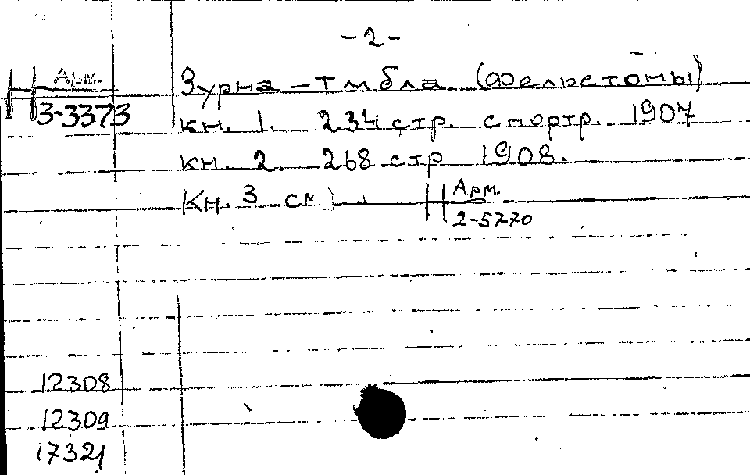 -2-
Арм.
3-3373
Зурна-тмбла (Фельетоны)
кн. 1. 234 стр. с портр. 1907
кн. 2. 268 стр 1908.
Кн. 3 см. Арм.
2-5770
12308
12309
17321